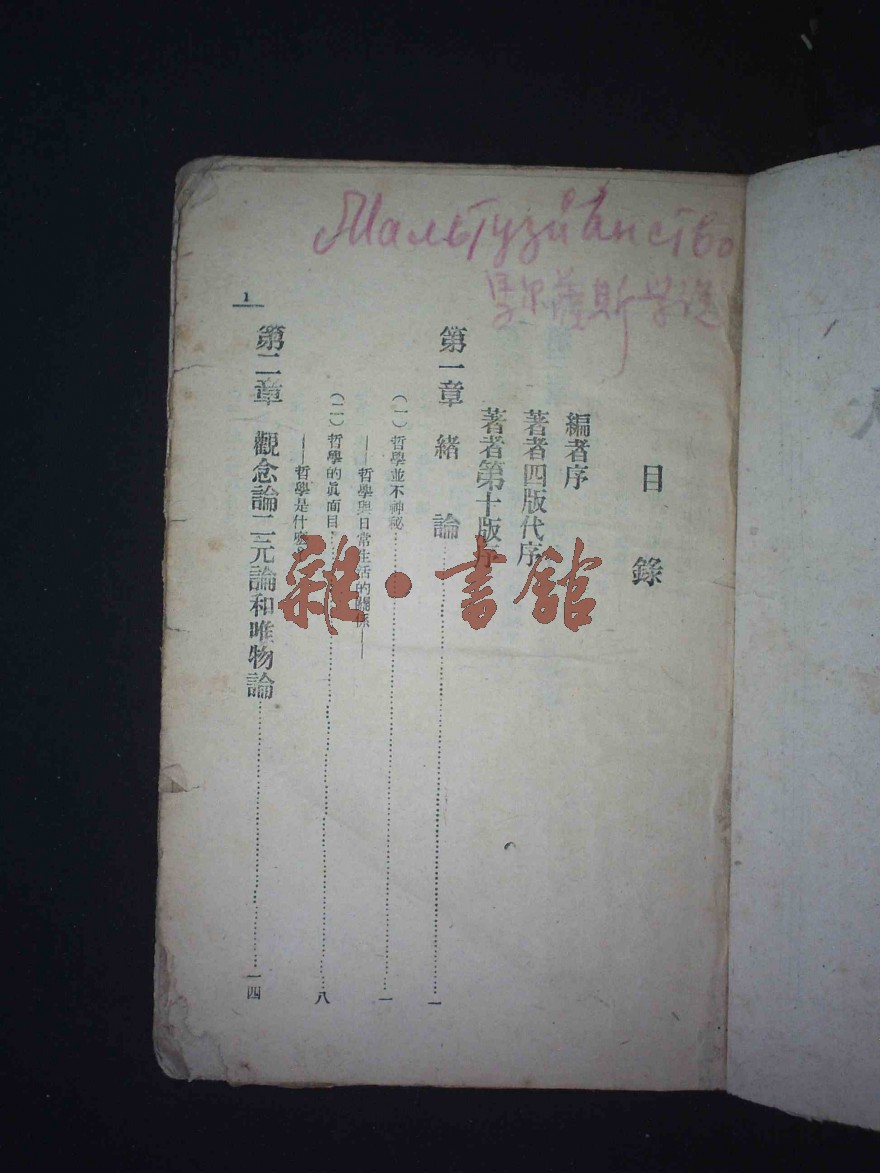 Мальтузианство
馬尔薩斯学说
目錄
編者序
著者四版代序
著者第十版序
第一章 緒論……一
(一)哲學並不神秘……一
——哲學與日常生活的關係——
(二)哲學的眞面目……八
——哲學是什麼
第二章 觀念論二元論和唯物論……一四
1
雜·書館